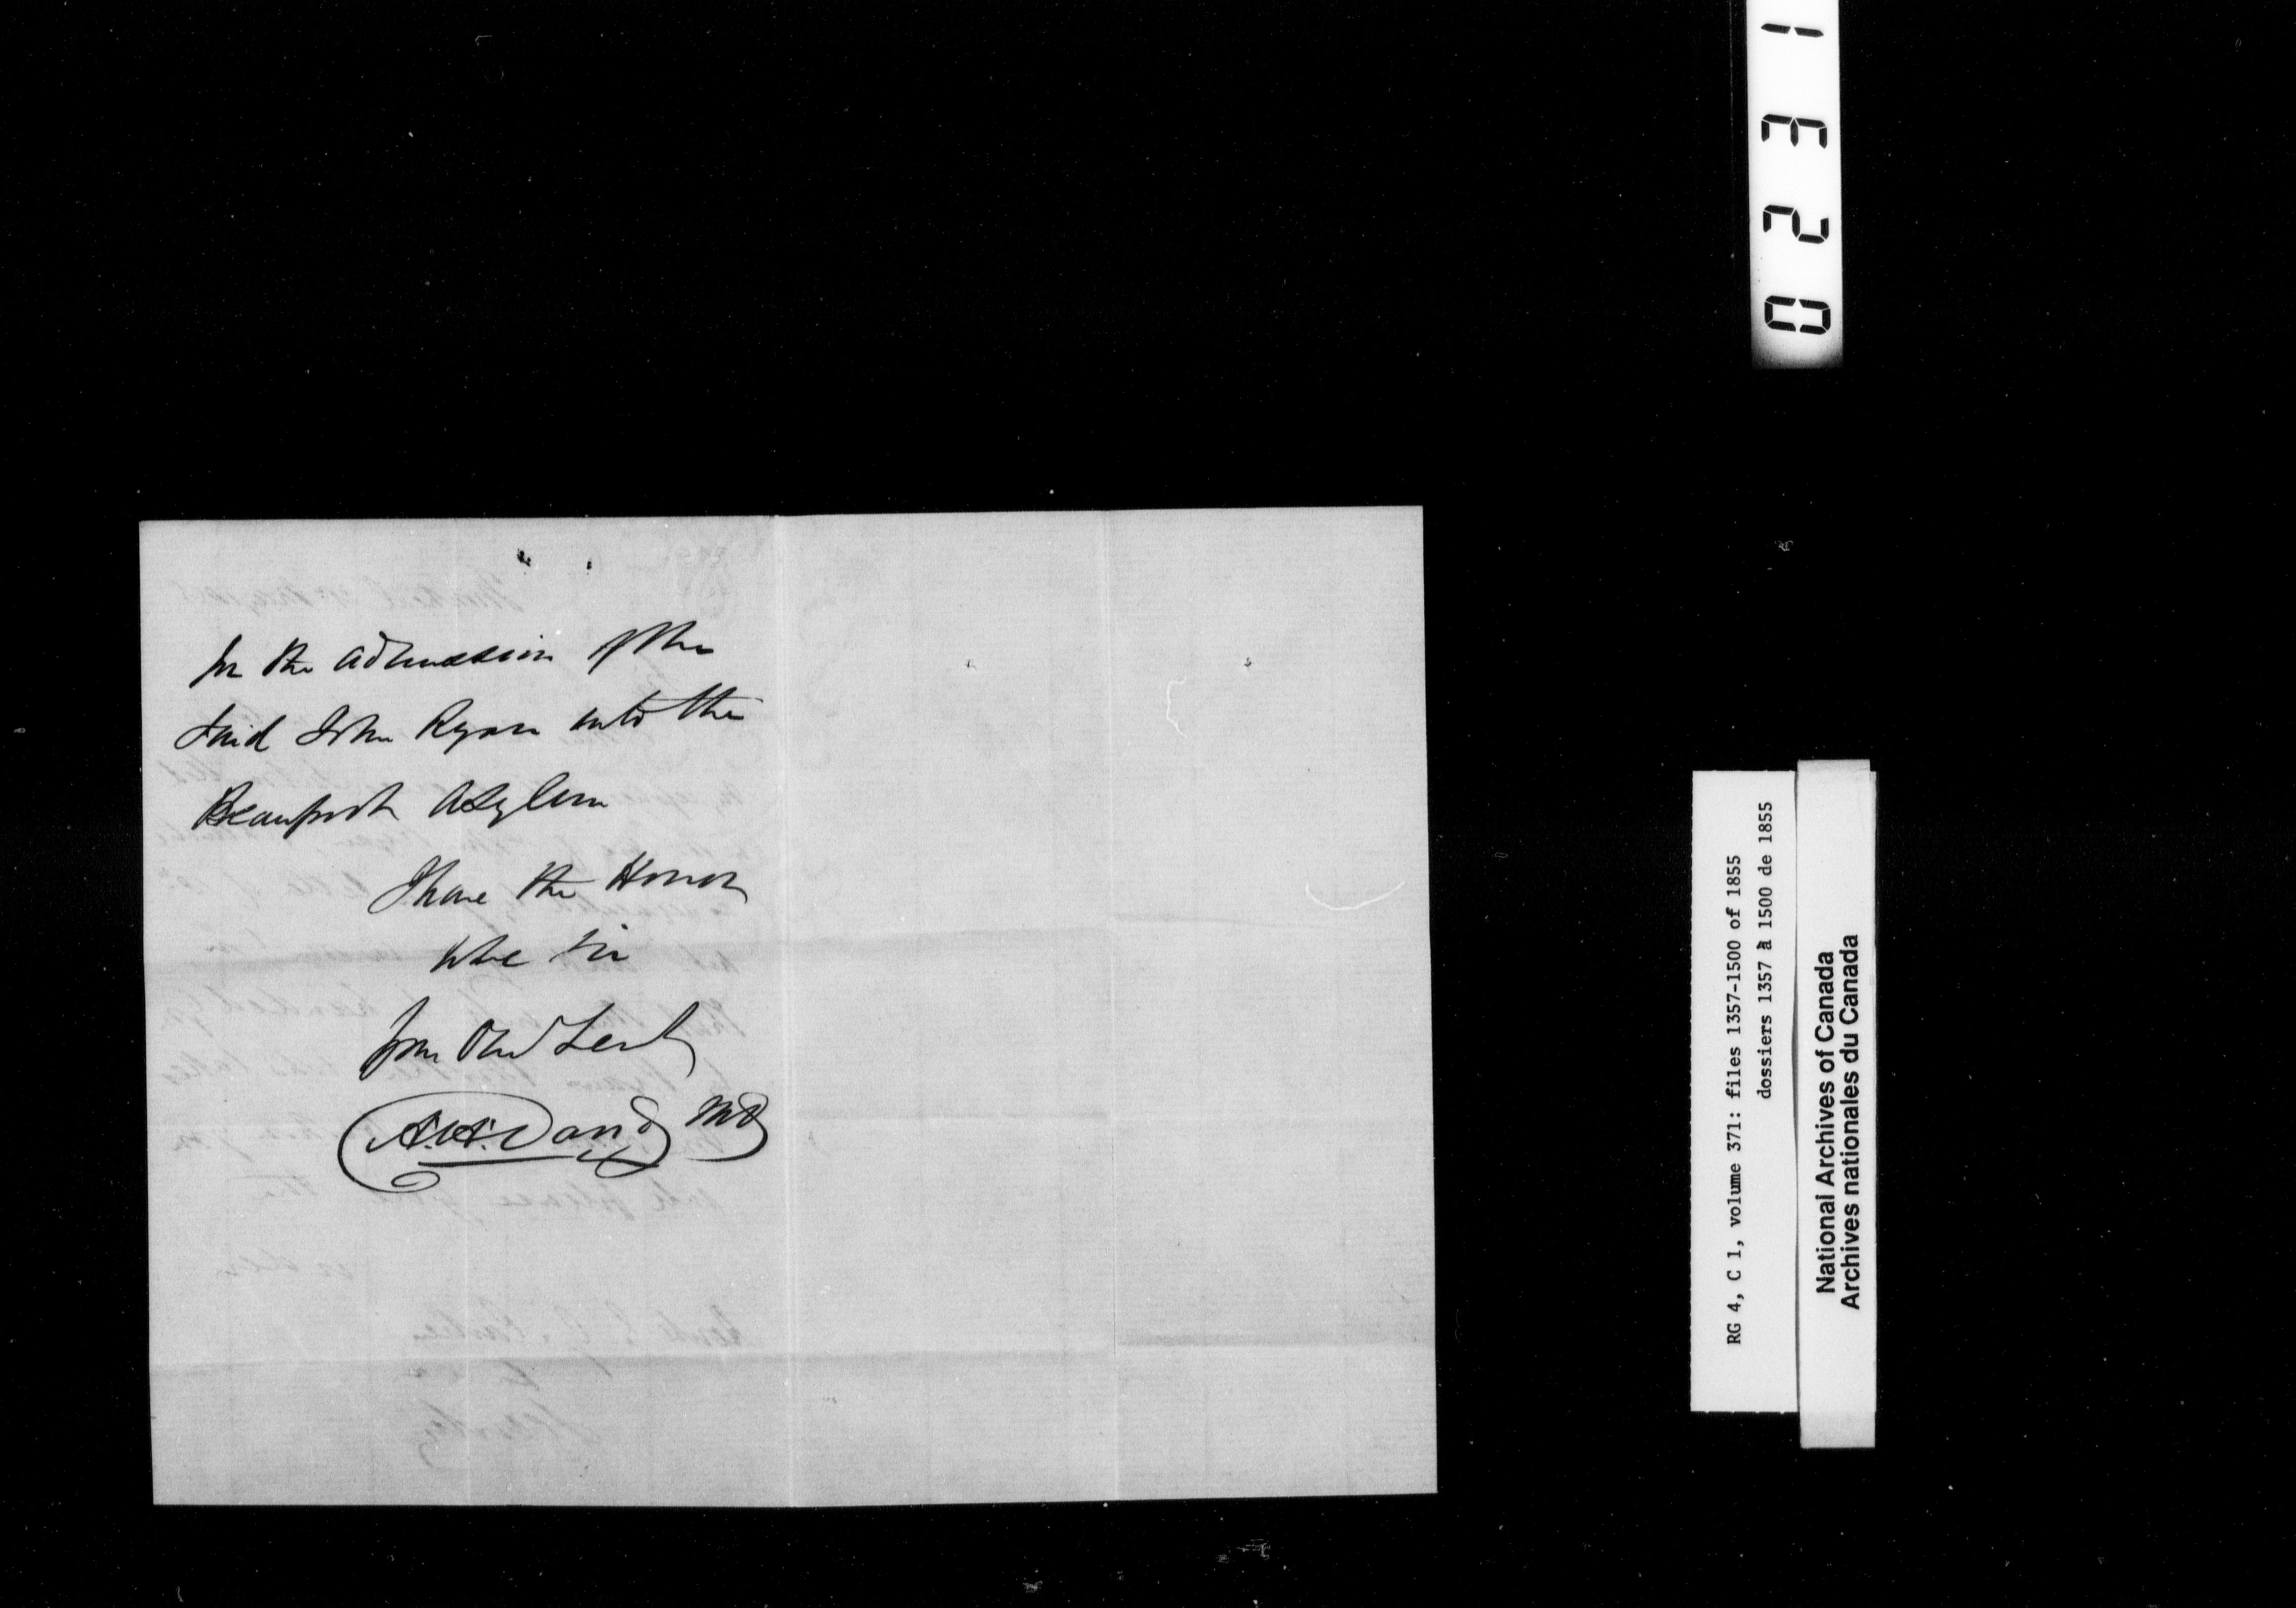 for the admission of the
said John Ryan into the
Beauport Asylum
I have the Honor
to be Sir
Your Obed Servt
A. H. David MD
1320
0231
RG 4, C 1, volume 371: files 1357-1500 of 1855
dossiers 1357 à 1500 de 1855
National Archives of Canada
Archives nationales du Canada